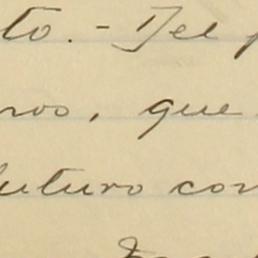 to. - Del p
rvo, que
futuro con